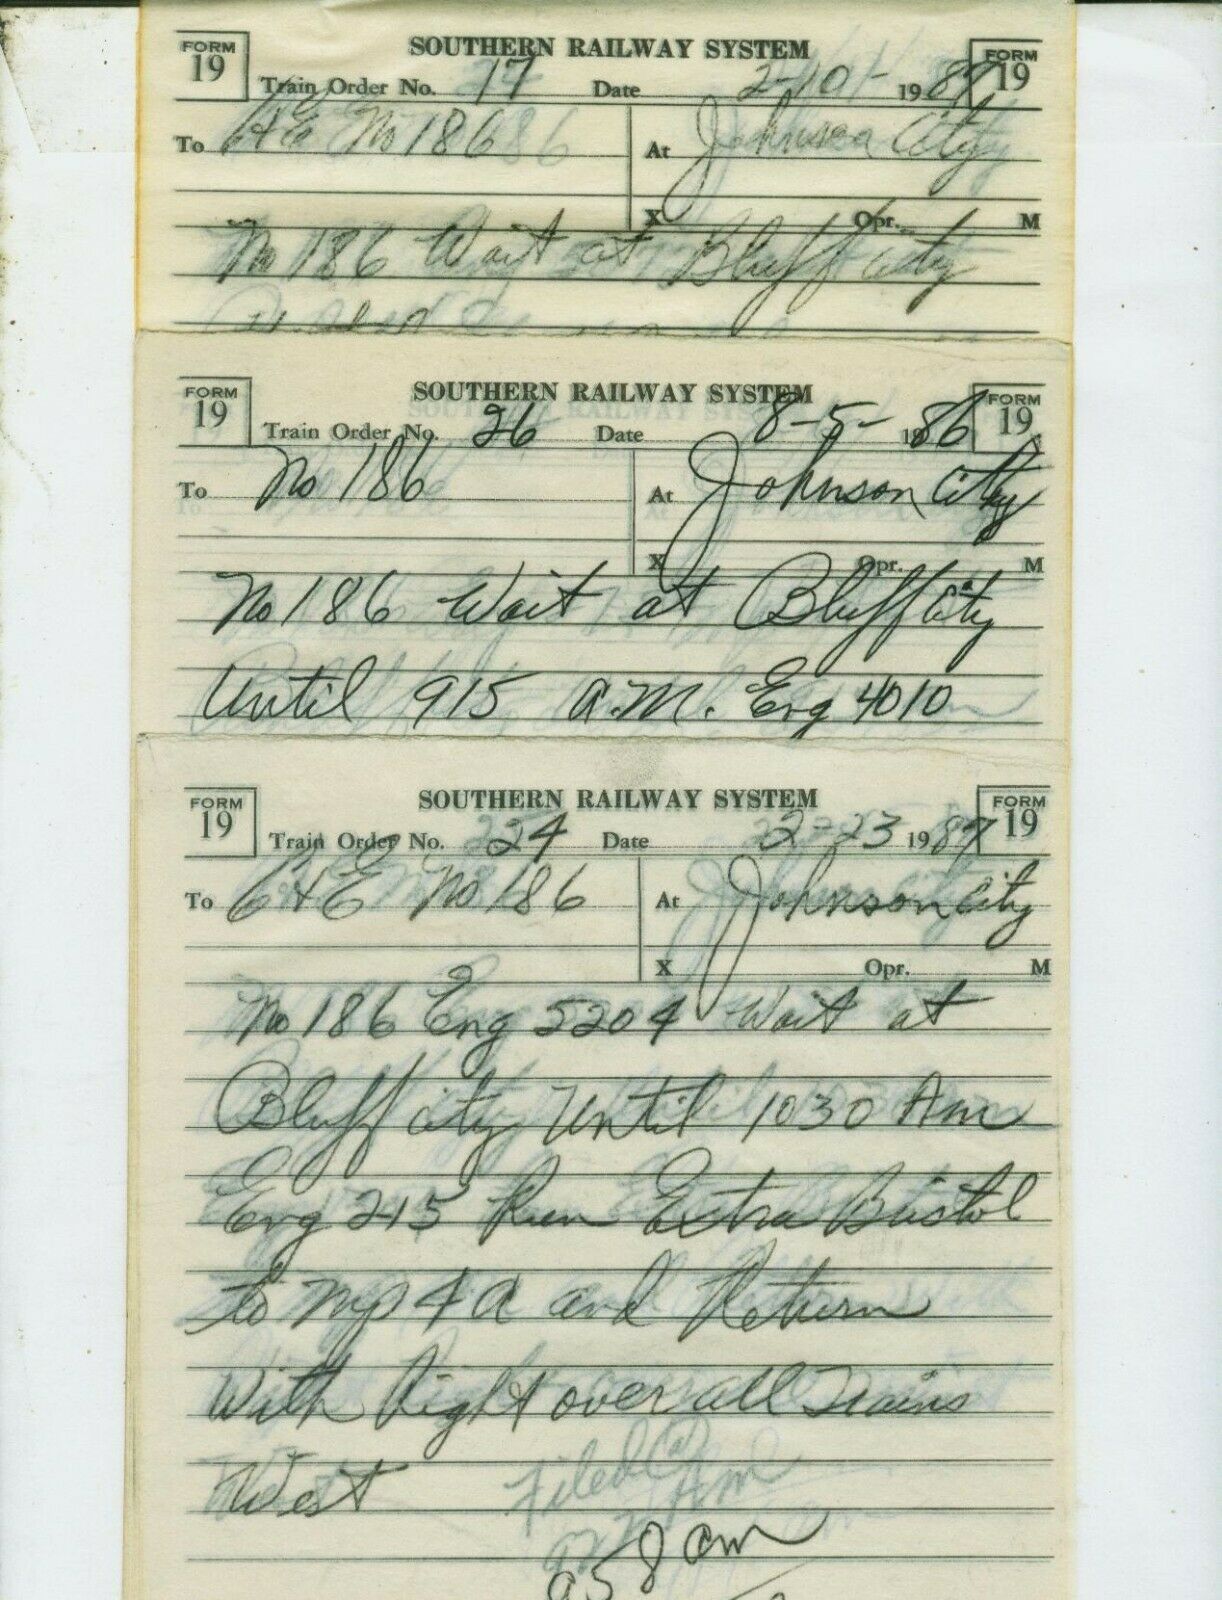 FORM 19 SOUTHERN RAILWAY SYSTEM FORM 19
Train Order No. 17 Date 2-10- 1987
To C&E No 186 At Johnson City
X Opr. M
No 186 Wait at Bluff City
FORM 19 SOUTHERN RAILWAY SYSTEM FORM 19
Train Order No. 26 Date 8-5- 1986
To No 186 At Johnson City
X Opr. M
No 186 Wait at Bluff City
Until 915 A.M. Eng 4010
FORM 19 SOUTHERN RAILWAY SYSTEM FORM 19
Train Order No. 224 Date 2-23 1987
To C&E No 186 At Johnson City
X Opr. M
No 186 Eng 5204 Wait at
Bluff City Until 1030 Am
Eng 215 Run Extra Bristol
to Mp 4 A and Return
With Right over all Trains
West Filed
Am
958 am